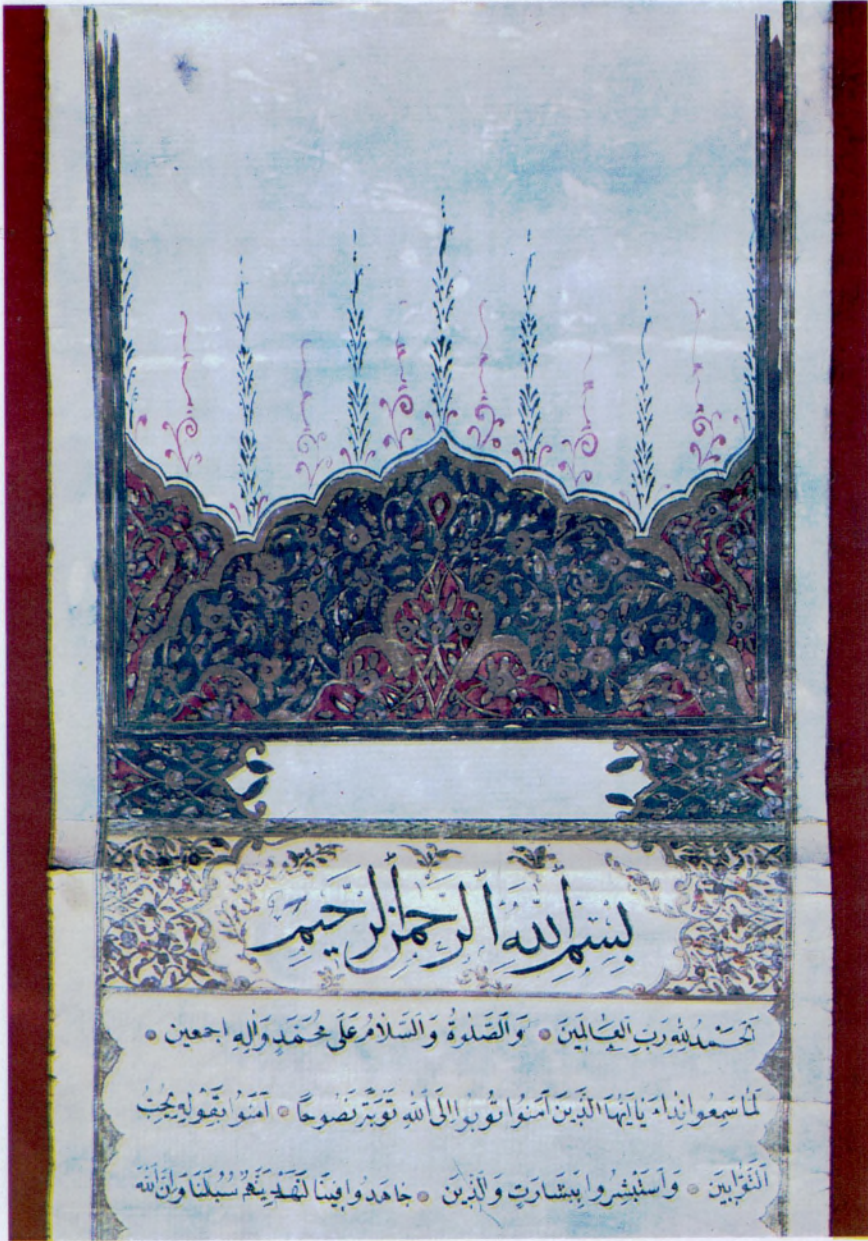 بِسْمِ اللّٰهِ الرَّحْمٰنِ الرَّحِيمِ
اَلْحَمْدُ لِلّٰهِ رَبِّ الْعَالَمِينَ ۞ وَالصَّلٰوةُ وَالسَّلَامُ عَلٰى مُحَمَّدٍ وَاٰلِهِ اجمعين ۞
لَمَّا سَمِعُوا نِدَاءَ يَا اَيُّهَا الَّذِينَ اٰمَنُوا تُوبُوا اِلَى اللّٰهِ تَوْبَةً نَصُوحًا ۞ اٰمَنُوا بِقَوْلِهِ يُحِبُّ
التَّوَّابِينَ ۞ وَاسْتَبْشِرُوا بِبَشَارَتِ وَالَّذِينَ ۞ جَاهَدُوا فِينَا لَنَهْدِيَنَّهُمْ سُبُلَنَا وَاِنَّ اللّٰهَ